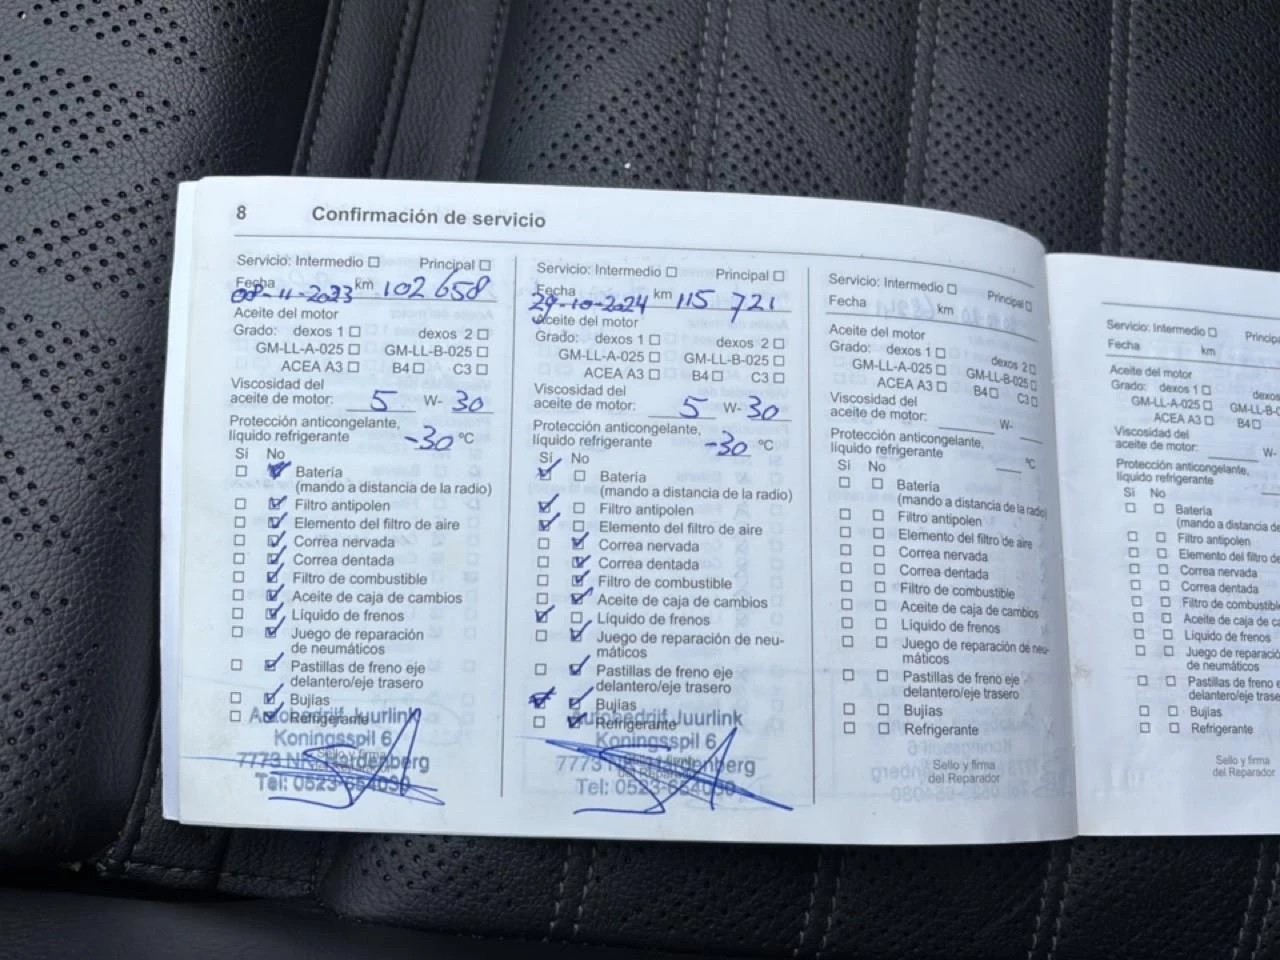 8 Confirmación de servicio
Servicio: Intermedio Principal
Fecha 08-11-2023 km 102 658
Aceite del motor
Grado: dexos 1 dexos 2
GM-LL-A-025 GM-LL-B-025
ACEA A3 B4 C3
Viscosidad del
aceite de motor: 5 W- 30
Protección anticongelante,
líquido refrigerante -30 °C
Sí No
Batería
(mando a distancia de la radio)
Filtro antipolen
Elemento del filtro de aire
Correa nervada
Correa dentada
Filtro de combustible
Aceite de caja de cambios
Líquido de frenos
Juego de reparación
de neumáticos
Pastillas de freno eje
delantero/eje trasero
Bujías
Refrigerante
Autobedrijf Juurlink
Koningsspil 6
Sello y firma
7773 Hardenberg
Tel: 0523-
Servicio: Intermedio Principal
Fecha 29-10-2024 km 115 721
Aceite del motor
Grado: dexos 1 dexos 2
GM-LL-A-025 GM-LL-B-025
ACEA A3 B4 C3
Viscosidad del
aceite de motor: 5 W- 30
Protección anticongelante,
líquido refrigerante -30 °C
Sí No
Batería
(mando a distancia de la radio)
Filtro antipolen
Elemento del filtro de aire
Correa nervada
Correa dentada
Filtro de combustible
Aceite de caja de cambios
Líquido de frenos
Juego de reparación de neu-
máticos
Pastillas de freno eje
delantero/eje trasero
Bujías
Refrigerante
Autobedrijf Juurlink
Koningsspil 6
7773 Hardenberg
Tel: 0523-
Servicio: Intermedio Principal
Fecha km
Aceite del motor
Grado: dexos 1 dexos 2
GM-LL-A-025 GM-LL-B-025
ACEA A3 B4 C3
Viscosidad del
aceite de motor: W-
Protección anticongelante,
líquido refrigerante °C
Sí No
Batería
(mando a distancia de la radio)
Filtro antipolen
Elemento del filtro de aire
Correa nervada
Correa dentada
Filtro de combustible
Aceite de caja de cambios
Líquido de frenos
Juego de reparación de neu-
máticos
Pastillas de freno eje
delantero/eje trasero
Bujías
Refrigerante
Sello y firma
del Reparador
Servicio: Intermedio Princip
Fecha km
Aceite del motor
Grado: dexos 1 dexos
GM-LL-A-025 GM-LL-B-
ACEA A3 B4
Viscosidad del
aceite de motor: W-
Protección anticongelante,
líquido refrigerante
Sí No
Batería
(mando a distancia d
Filtro antipolen
Elemento del filtro d
Correa nervada
Correa dentada
Filtro de combustibl
Aceite de caja de ca
Líquido de frenos
Juego de reparació
de neumáticos
Pastillas de freno e
delantero/eje traser
Bujías
Refrigerante
Sello y firma
del Reparador